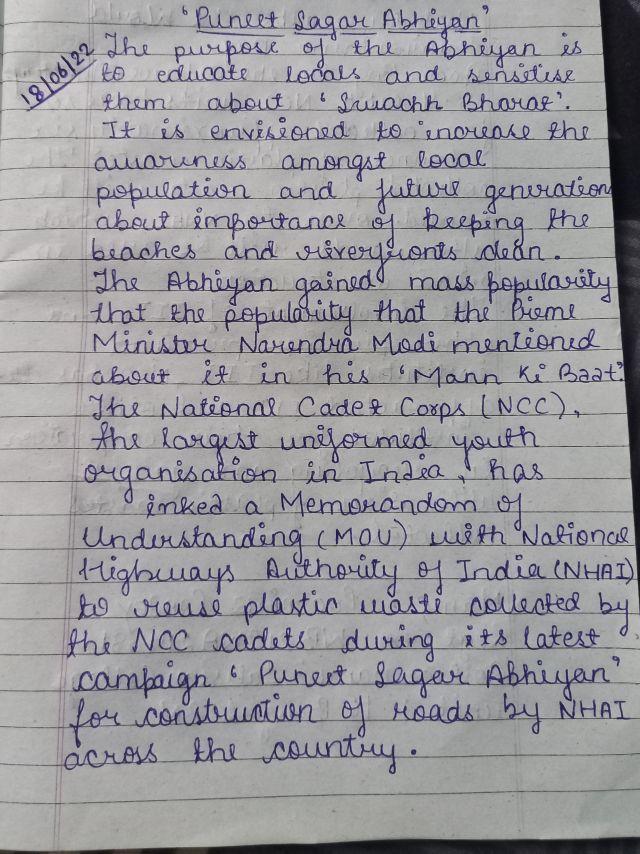 'Puneet Sagar Abhiyan'
18/06/22
The purpose of the Abhiyan is
to educate locals and sensitise
them about 'Swachh Bharat'.
It is envisioned to increase the
awareness amongst local
population and future generations
about importance of keeping the
beaches and riverfronts clean.
The Abhiyan gained mass popularity
that the popularity that the Prime
Minister Narendra Modi mentioned
about it in his 'Mann Ki Baat'.
The National Cadet Corps (NCC),
the largest uniformed youth
organisation in India, has
inked a Memorandom of
Understanding (MOU) with National
Highways Authority of India (NHAI)
to reuse plastic waste collected by
the NCC cadets during its latest
campaign 'Puneet Sagar Abhiyan'
for construction of roads by NHAI
across the country.